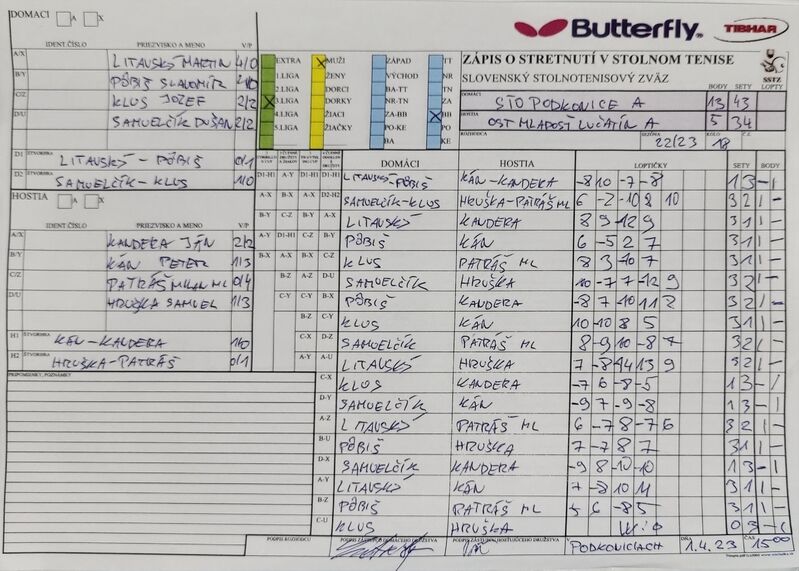 DOMÁCI A X
IDENT.ČÍSLO PRIEZVISKO A MENO V/P
A/X LITAVSKÝ MARTIN 4/0
B/Y PÔBIŠ SLAVOMÍR
C/Z KLUS JOZEF 2/2
D/U SAMUELČÍK DUŠAN 2/2
D1 ŠTVORHRA LITAVSKÝ - PÔBIŠ 0/1
D2 ŠTVORHRA SAMUELČÍK - KLUS 1/0
HOSTIA A X
IDENT.ČÍSLO PRIEZVISKO A MENO V/P
A/X KANDERA JÁN 2/2
B/Y KÁN PETER 1/3
C/Z PATRÁŠ MILAN ML 0/4
D/U HRUŠKA SAMUEL 1/3
H1 ŠTVORHRA KÁN - KANDERA 1/0
H2 ŠTVORHRA HRUŠKA - PATRÁŠ 0/1
PRIPOMIENKY, POZNÁMKY
EXTRA
1.LIGA
2.LIGA
3.LIGA
4.LIGA
5.LIGA
MUŽI
ŽENY
DORCI
DORKY
ŽIACI
ŽIAČKY
ZÁPAD
VÝCHOD
BA-TT
NR-TN
ZA-BB
PO-KE
BA
TT
NR
TN
ZA
BB
PO
KE
Butterfly
TIBHAR
ZÁPIS O STRETNUTÍ V STOLNOM TENISE
SLOVENSKÝ STOLNOTENISOVÝ ZVÄZ
SSTZ
BODY SETY LOPTY
DOMÁCI STO PODKONICE A 13 43
HOSTIA OST MLADOSŤ LUČATÍN A 5 34
ROZHODCA SEZÓNA 22/23 KOLO 18 Č.
DOMÁCI HOSTIA LOPTIČKY SETY BODY
D1-H1 A-Y D1-H1 LITAVSKÝ-PÔBIŠ KÁN-KANDERA -8 10 -7 -8 1 3 - 1
A-X B-X A-X D2-H2 SAMUELČÍK-KLUS HRUŠKA-PATRÁŠ ML 6 -2 -10 2 10 3 2 1 -
B-Y C-Z B-Y A-X LITAVSKÝ KANDERA 8 9 -12 9 3 1 1 -
A-Y D1-H1 C-Z B-Y PÔBIŠ KÁN 6 -5 2 7 3 1 1 -
B-X A-X A-Y C-Z KLUS PATRÁŠ ML 8 3 -10 7 3 1 1 -
B-Z A-Z D-U SAMUELČÍK HRUŠKA 10 -7 7 -12 9 3 2 1 -
C-Y C-Y B-X PÔBIŠ KANDERA -8 7 -10 11 2 3 2 1 -
B-Z C-Y KLUS KÁN 10 -10 8 5 3 1 1 -
C-X D-Z SAMUELČÍK PATRÁŠ ML 8 -9 10 -8 7 3 2 1 -
A-Y A-U LITAVSKÝ HRUŠKA 7 -8 -14 13 9 3 2 1 -
C-X KLUS KANDERA -7 6 -8 -5 1 3 - 1
D-Y SAMUELČÍK KÁN -9 7 -9 -8 1 3 - 1
A-Z LITAVSKÝ PATRÁŠ ML 6 -7 8 -7 6 3 2 1 -
B-U PÔBIŠ HRUŠKA 7 -7 8 7 3 1 1 -
D-X SAMUELČÍK KANDERA -9 8 -10 -10 1 3 - 1
A-Y LITAVSKÝ KÁN 7 -8 10 11 3 1 1 -
B-Z PÔBIŠ PATRÁŠ ML 6 -8 5 3 1 1 -
C-U KLUS HRUŠKA W:O 0 3 -
PODPIS ROZHODCU PODPIS ZÁSTUPCU DOMÁCEHO DRUŽSTVA PODPIS ZÁSTUPCU HOSŤUJÚCEHO DRUŽSTVA V PODKONICIACH DŇA 1.4.23 ČAS 15:00